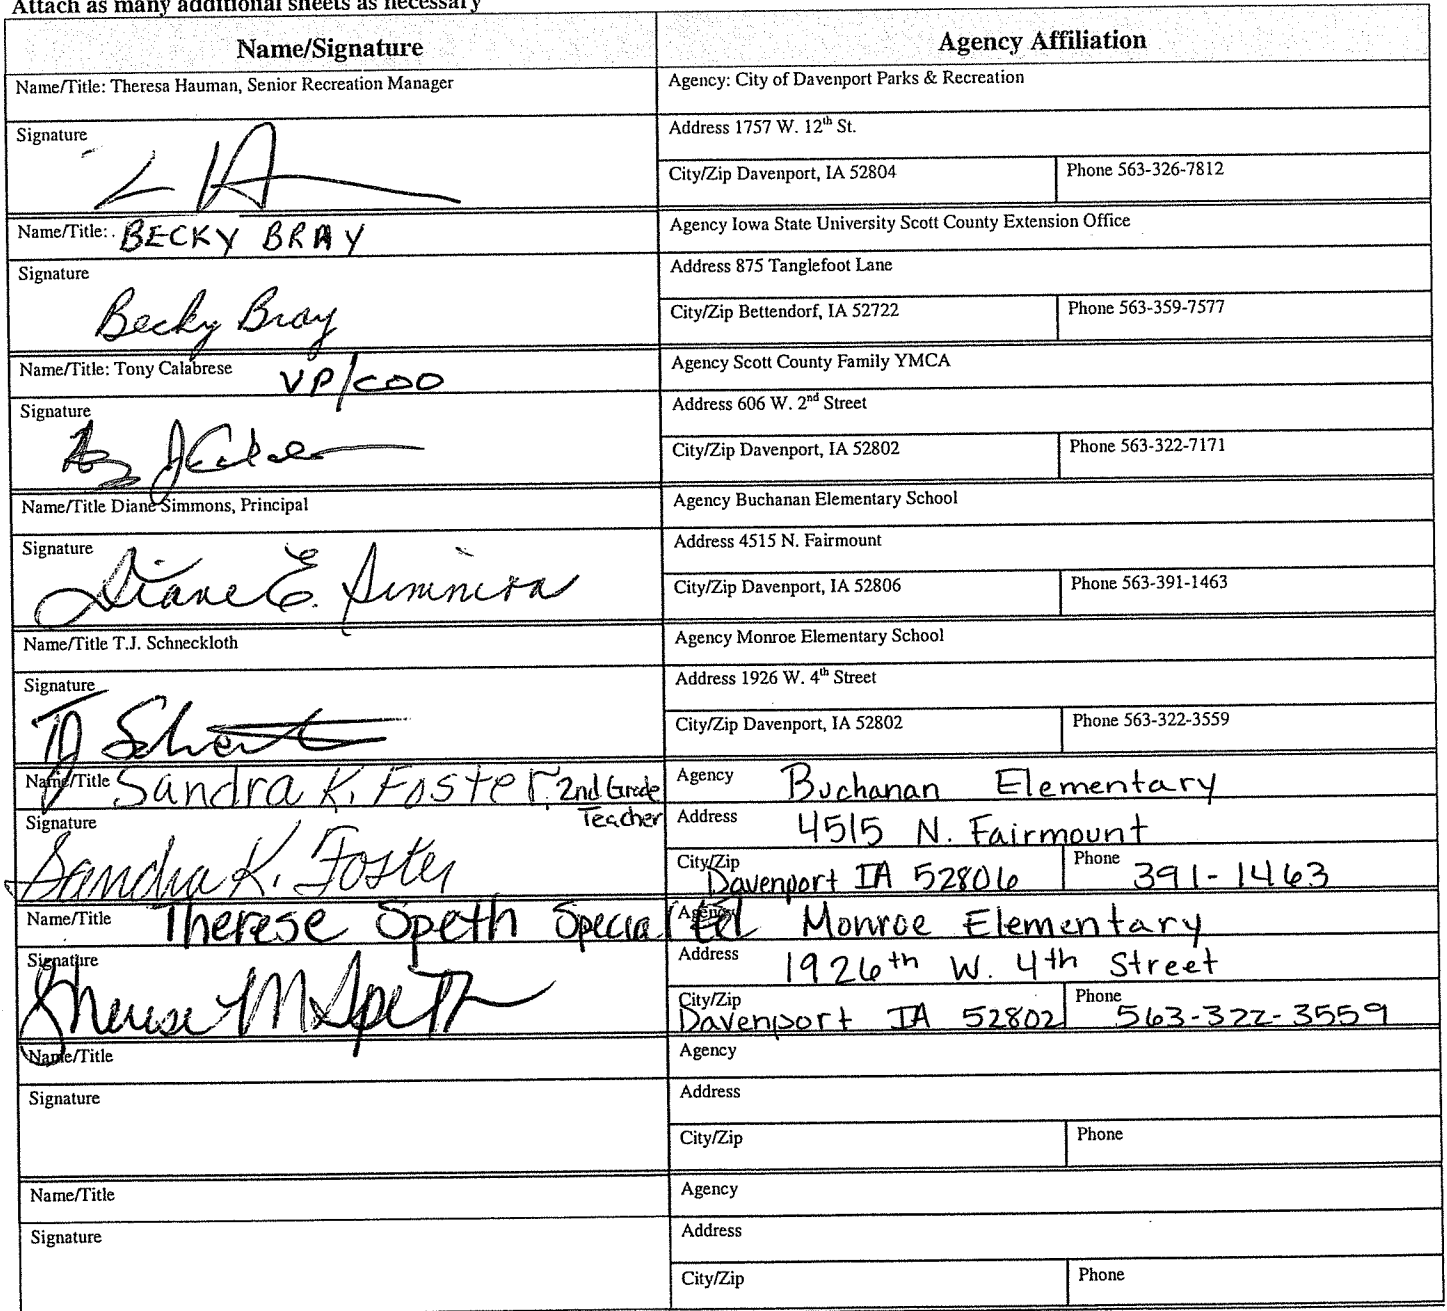 Attach as many additional sheets as necessary
Name/Signature Agency Affiliation
Name/Title: Theresa Hauman, Senior Recreation Manager Agency: City of Davenport Parks & Recreation
Signature Address 1757 W. 12th St.
City/Zip Davenport, IA 52804 Phone 563-326-7812
Name/Title: BECKY BRAY Agency Iowa State University Scott County Extension Office
Signature Becky Bray Address 875 Tanglefoot Lane
City/Zip Bettendorf, IA 52722 Phone 563-359-7577
Name/Title: Tony Calabrese VP/COO Agency Scott County Family YMCA
Signature Address 606 W. 2nd Street
City/Zip Davenport, IA 52802 Phone 563-322-7171
Name/Title Diane Simmons, Principal Agency Buchanan Elementary School
Signature Diane E. Simmons Address 4515 N. Fairmount
City/Zip Davenport, IA 52806 Phone 563-391-1463
Name/Title T.J. Schneckloth Agency Monroe Elementary School
Signature Address 1926 W. 4th Street
City/Zip Davenport, IA 52802 Phone 563-322-3559
Name/Title Sandra K. Foster, 2nd Grade Teacher Agency Buchanan Elementary
Signature Sandra K. Foster Address 4515 N. Fairmount
City/Zip Davenport IA 52806 Phone 391-1463
Name/Title Therese Speth Special Ed Agency Monroe Elementary
Signature Therese M Speth Address 1926th W. 4th Street
City/Zip Davenport IA 52802 Phone 563-322-3559
Name/Title Agency
Signature Address
City/Zip Phone
Name/Title Agency
Signature Address
City/Zip Phone